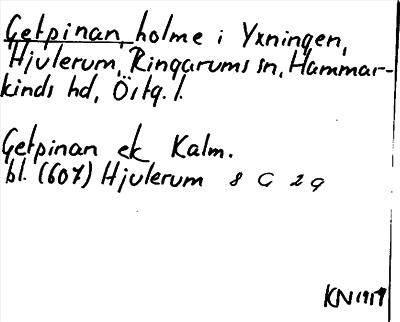 Getpinan, holme i Yxningen,
Hjulerum, Ringarums sn, Hammar-
kinds hd, Östg. l.
Getpinan ek Kalm.
bl. (607) Hjulerum 8 G 2 g
KN 1959